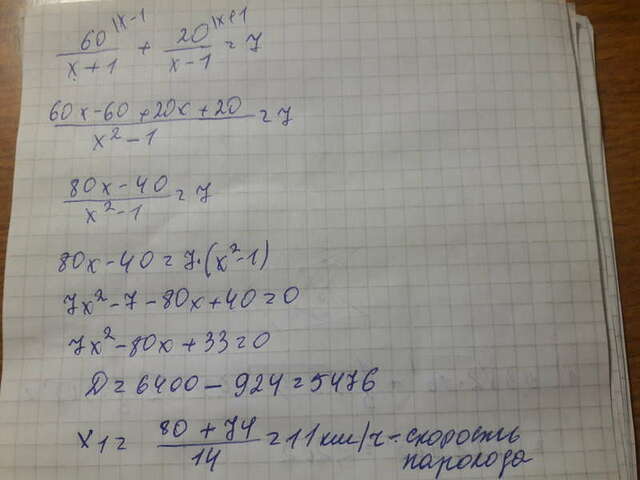 60^{\x-1}/x+1 + 20^{\x+1}/x-1 = 7
60x-60+20x+20/x²-1 = 7
80x-40/x²-1 = 7
80x-40=7·(x²-1)
7x²-7-80x+40=0
7x²-80x+33=0
D=6400-924=5476
x1= 80+74/14 = 11км/ч-скорость
парохода